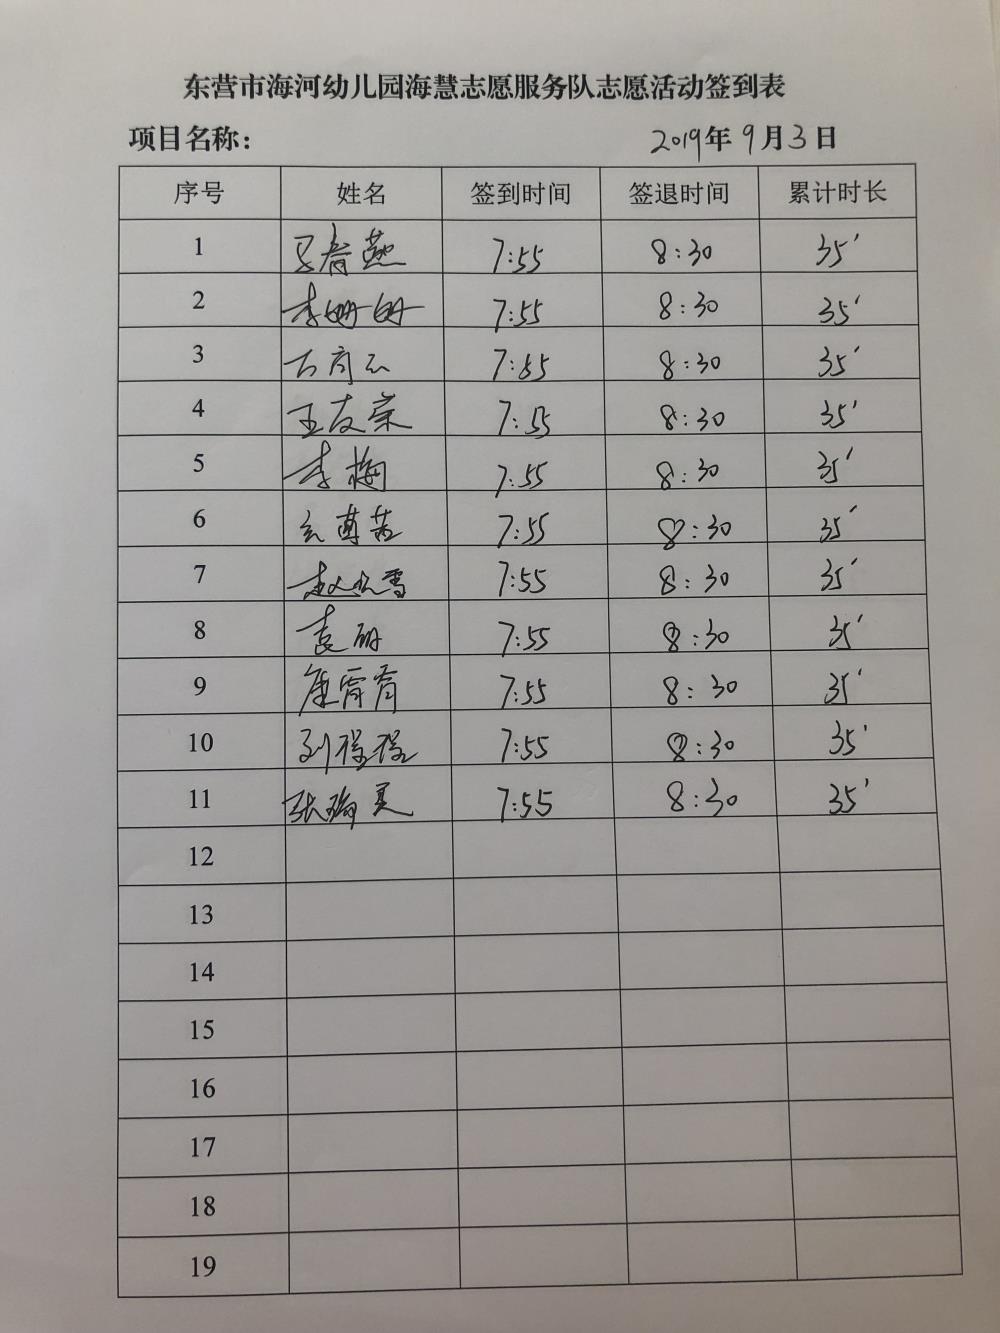 东营市海河幼儿园海慧志愿服务队志愿活动签到表
项目名称： 2019年9月3日
序号 姓名 签到时间 签退时间 累计时长
1 马春燕 7:55 8:30 35'
2 李姗姗 7:55 8:30 35'
3 7:55 8:30 35'
4 王友荣 7:55 8:30 35'
5 李梅 7:55 8:30 35'
6 7:55 8:30 35'
7 赵 雪 7:55 8:30 35'
8 袁丽 7:55 8:30 35'
9 7:55 8:30 35'
10 刘程程 7:55 8:30 35'
11 张瑞美 7:55 8:30 35'
12
13
14
15
16
17
18
19